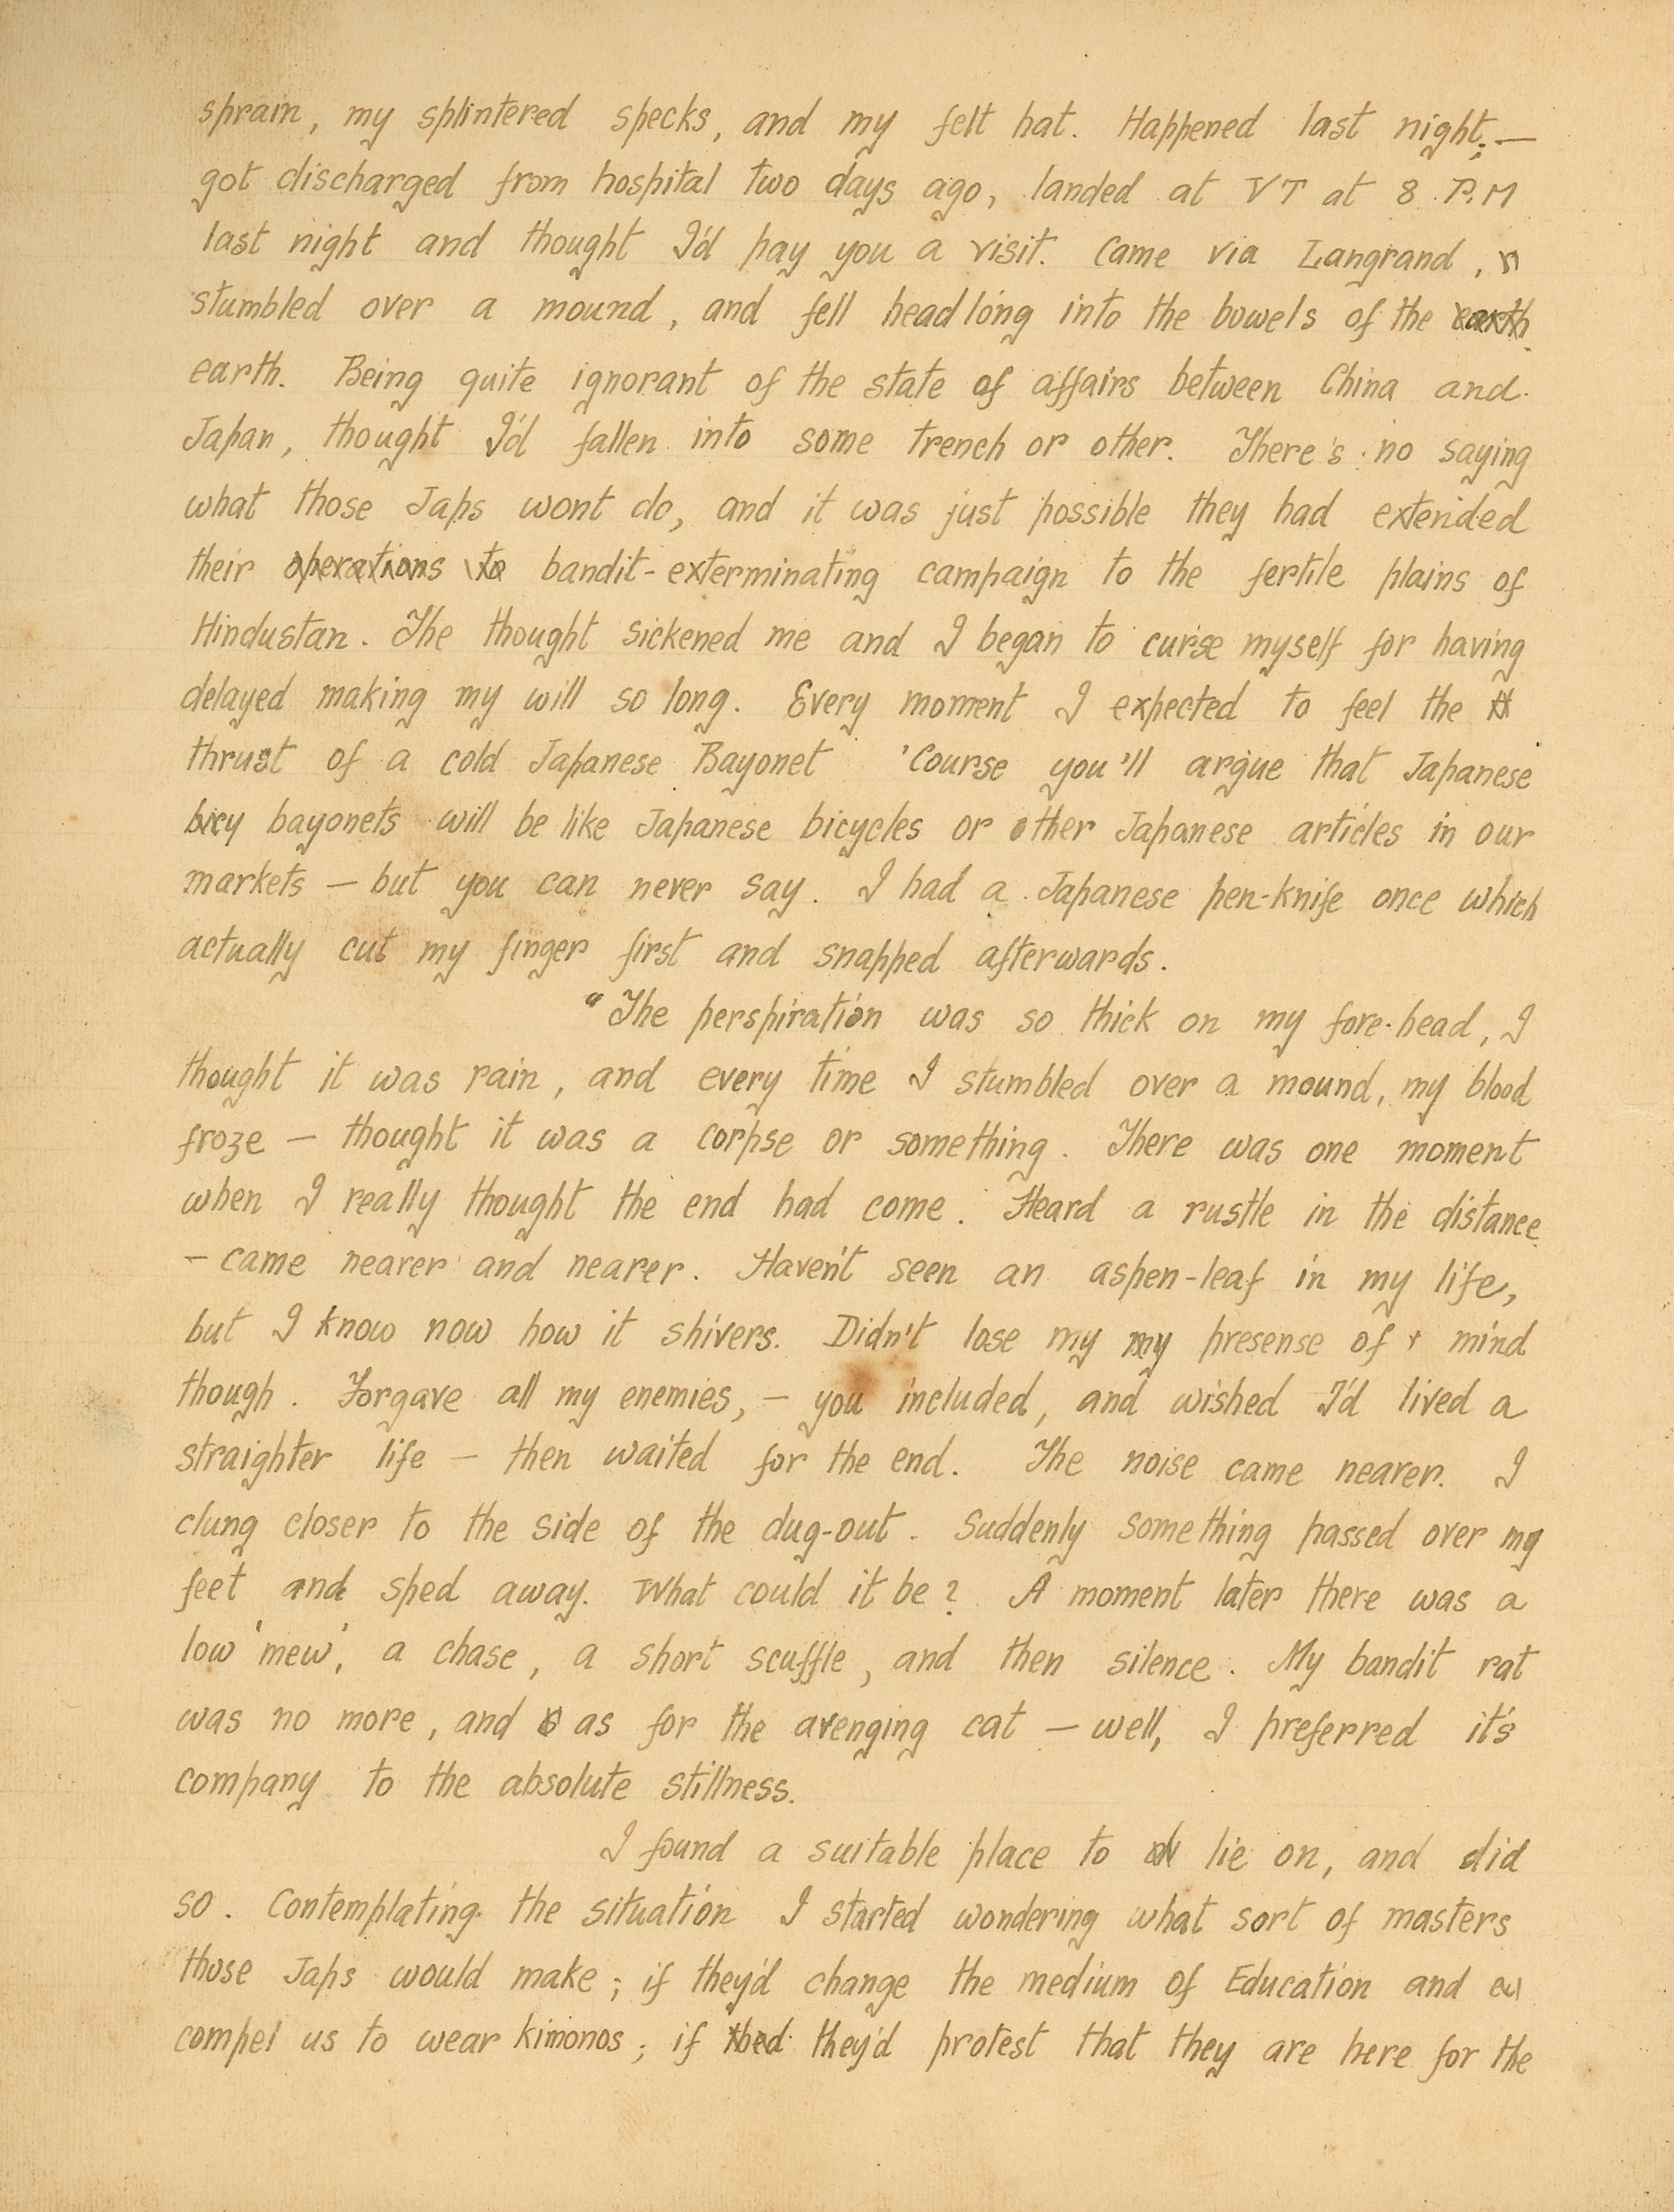 sprain, my splintered specks, and my felt hat. Happened last night; —
got discharged from hospital two days ago, landed at VT at 8 P.M
last night and thought I'd pay you a visit. Came via Langrand,
stumbled over a mound, and fell headlong into the bowels of the earth
earth. Being quite ignorant of the state of affairs between China and
Japan, thought I'd fallen into some trench or other. There's no saying
what those Japs wont do, and it was just possible they had extended
their operations to bandit-exterminating campaign to the fertile plains of
Hindustan. The thought sickened me and I began to curse myself for having
delayed making my will so long. Every moment I expected to feel the
thrust of a cold Japanese Bayonet 'Course you'll argue that Japanese
bicy bayonets will be like Japanese bicycles or other Japanese articles in our
markets — but you can never say. I had a Japanese pen-knife once which
actually cut my finger first and snapped afterwards.
"The perspiration was so thick on my fore-head, I
thought it was rain, and every time I stumbled over a mound, my blood
froze — thought it was a corpse or something. There was one moment
when I really thought the end had come. Heard a rustle in the distance
— came nearer and nearer. Haven't seen an aspen-leaf in my life,
but I know now how it shivers. Didn't lose my my presense of mind
though. Forgave all my enemies, — you included, and wished I'd lived a
straighter life — then waited for the end. The noise came nearer. I
clung closer to the side of the dug-out. Suddenly something passed over my
feet and sped away. What could it be? A moment later there was a
low 'mew', a chase, a short scuffle, and then silence. My bandit rat
was no more, and as for the avenging cat — well, I preferred it's
company to the absolute stillness.
I found a suitable place to lie on, and did
so. Contemplating the situation I started wondering what sort of masters
those Japs would make; if they'd change the medium of Education and
compel us to wear kimonos; if they'd protest that they are here for the